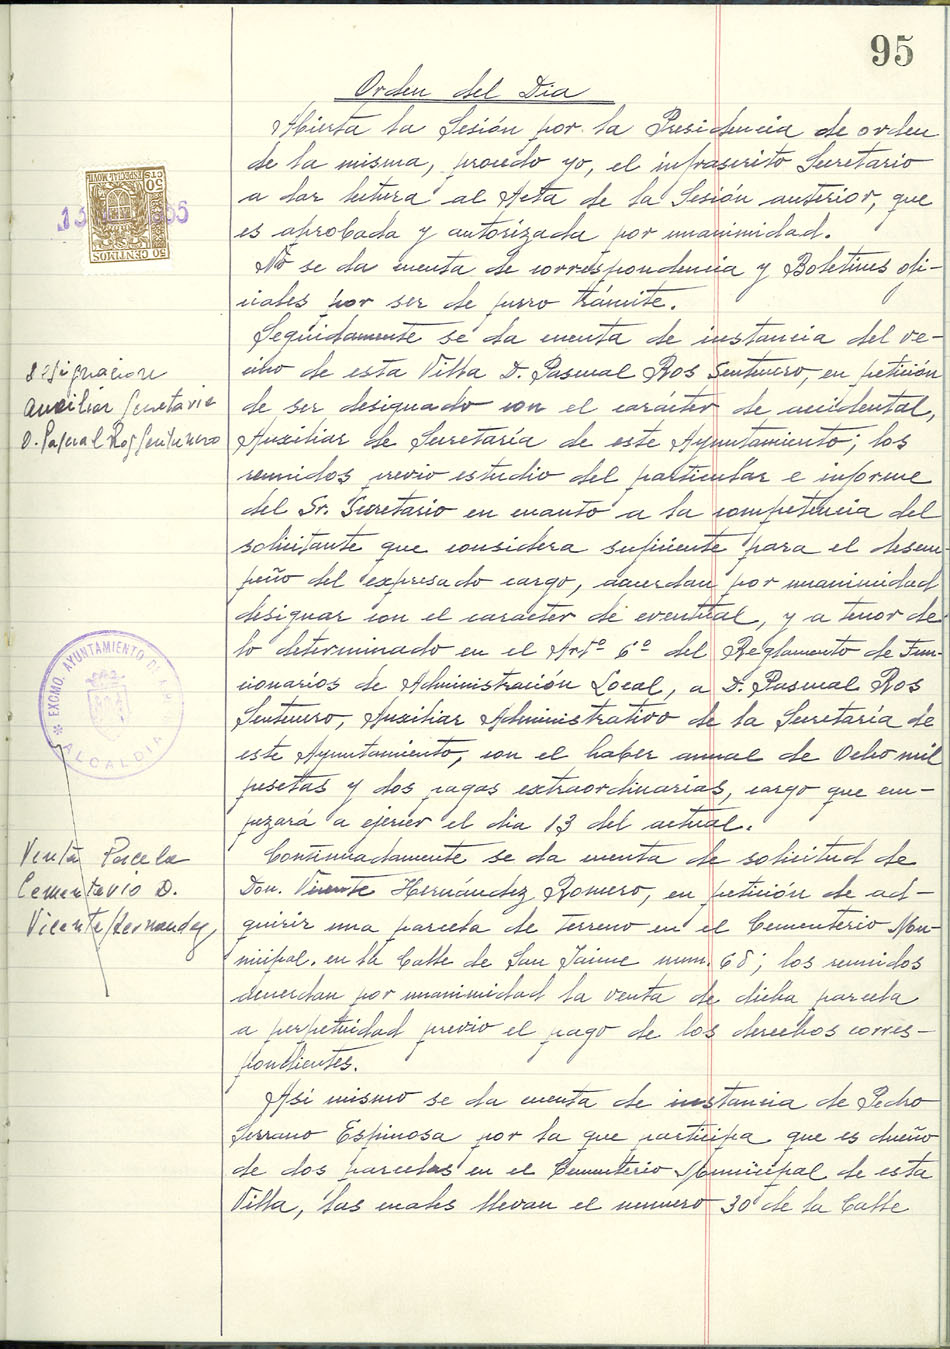 95
Orden del Dia
Abierta la Sesión por la Presidencia de orden
de la misma, procedo yo, el infrascrito Secretario
a dar lectura al Acta de la Sesión anterior, que
es aprobada y autorizada por unanimidad.
No se da cuenta de correspondencia y Boletines ofi-
ciales por ser de puro trámite.
Seguidamente se da cuenta de instancia del ve-
cino de esta Villa D. Pascual Ros Sentenero, en petición
de ser designado con el carácter de accidental,
Auxiliar de Secretaría de este Ayuntamiento; los
reunidos previo estudio del particular e informe
del Sr. Secretario en cuanto a la competencia del
solicitante que considera suficiente para el desem-
peño del expresado cargo, acuerdan por unanimidad
designar con el carácter de eventual, y a tenor de
lo determinado en el Artº 6º del Reglamento de Fun-
cionarios de Administración Local, a D. Pascual Ros
Sentenero, Auxiliar Administrativo de la Secretaría de
este Ayuntamiento, con el haber anual de Ocho mil
pesetas y dos pagas extraordinarias, cargo que em-
pezará a ejercer el dia 13 del actual.
Continuadamente se da cuenta de solicitud de
Don. Vicente Hernández Romero, en petición de ad-
quirir una parcela de terreno en el Cementerio Mu-
nicipal. en la Calle de San Jaime num. 68; los reunidos
acuerdan por unanimidad la venta de dicha parcela
a perpetuidad previo el pago de los derechos corres-
pondientes.
Asi mismo se da cuenta de instancia de Pedro
Serrano Espinosa por la que participa que es dueño
de dos parcelas en el Cementerio Municipal de esta
Villa, las cuales llevan el numero 30 de la Calle
ESPECIAL MOVIL
50 CTS
50 CENTIMOS
designacion
Auxiliar Secretaria
D. Pascual Ros Sentenero
EXCMO. AYUNTAMIENTO DE
ALCALDIA
Venta Parcela
Cementerio D.
Vicente Hernandez